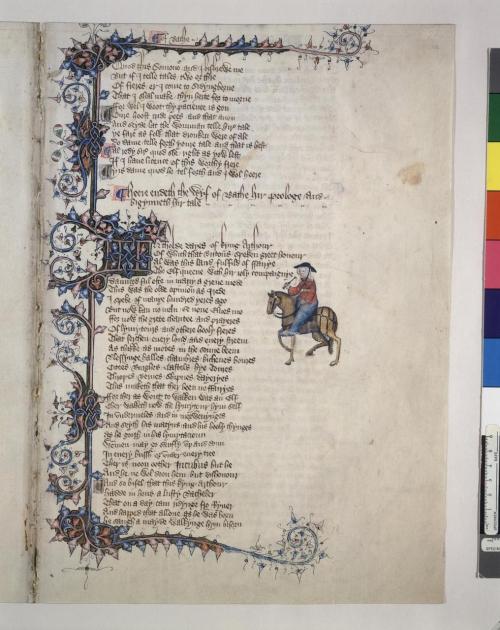 Of Bathe
Quod this Somonour and I bishrewe me
But if I telle tales two or thre
Of freres er I come to Sidyngborne
That I shal make thyn herte for to morne
For wel I woot thy pacience is gon
Oure hoost cride pees and that anon
And seyde lat the womman telle hire tale
Ye fare as folk that dronken were of ale
Do dame telle forth youre tale and that is best
Al redy sir quod she right as yow lest
If I have licence of this worthy frere
Yis dame quod he tel forth and I wol heere
Heere endeth the Wyf of Bathe hir prologe And
bigynneth hir tale
In tholde dayes of kyng Arthour
Of which that Britons speken greet honour
Al was this land fulfild of fairye
The Elf queene with hir joly compaignye
Daunced ful ofte in many a grene mede
This was the olde opinion as I rede
I speke of manye hundred yeres ago
But now kan no man se none Elves mo
For now the grete charitee and prayeres
Of lymytours and othere hooly freres
That serchen every lond and every streem
As thikke as motes in the sonne beem
Blessynge halles chambres kichenes boures
Citees Burghes Castels hye Toures
Thropes Bernes Shipnes Dayeryes
This maketh that they been no fairyes
For ther as wont to walken was an Elf
Ther walketh now the lymytour hym self
In undermeles and in morwenynges
And seyth his matyns and his hooly thynges
As he gooth in his lymytacioun
Wommen may go saufly up and doun
In every bussh or under every tree
Ther is noon oother Incubus but he
And he ne wol doon hem but dishonour
And so bifel that this kyng Arthour
Hadde in hous a lusty Bacheler
That on a day cam ridynge fro Ryver
And happed that allone as he was born
He saugh a mayde walkynge hym biforn